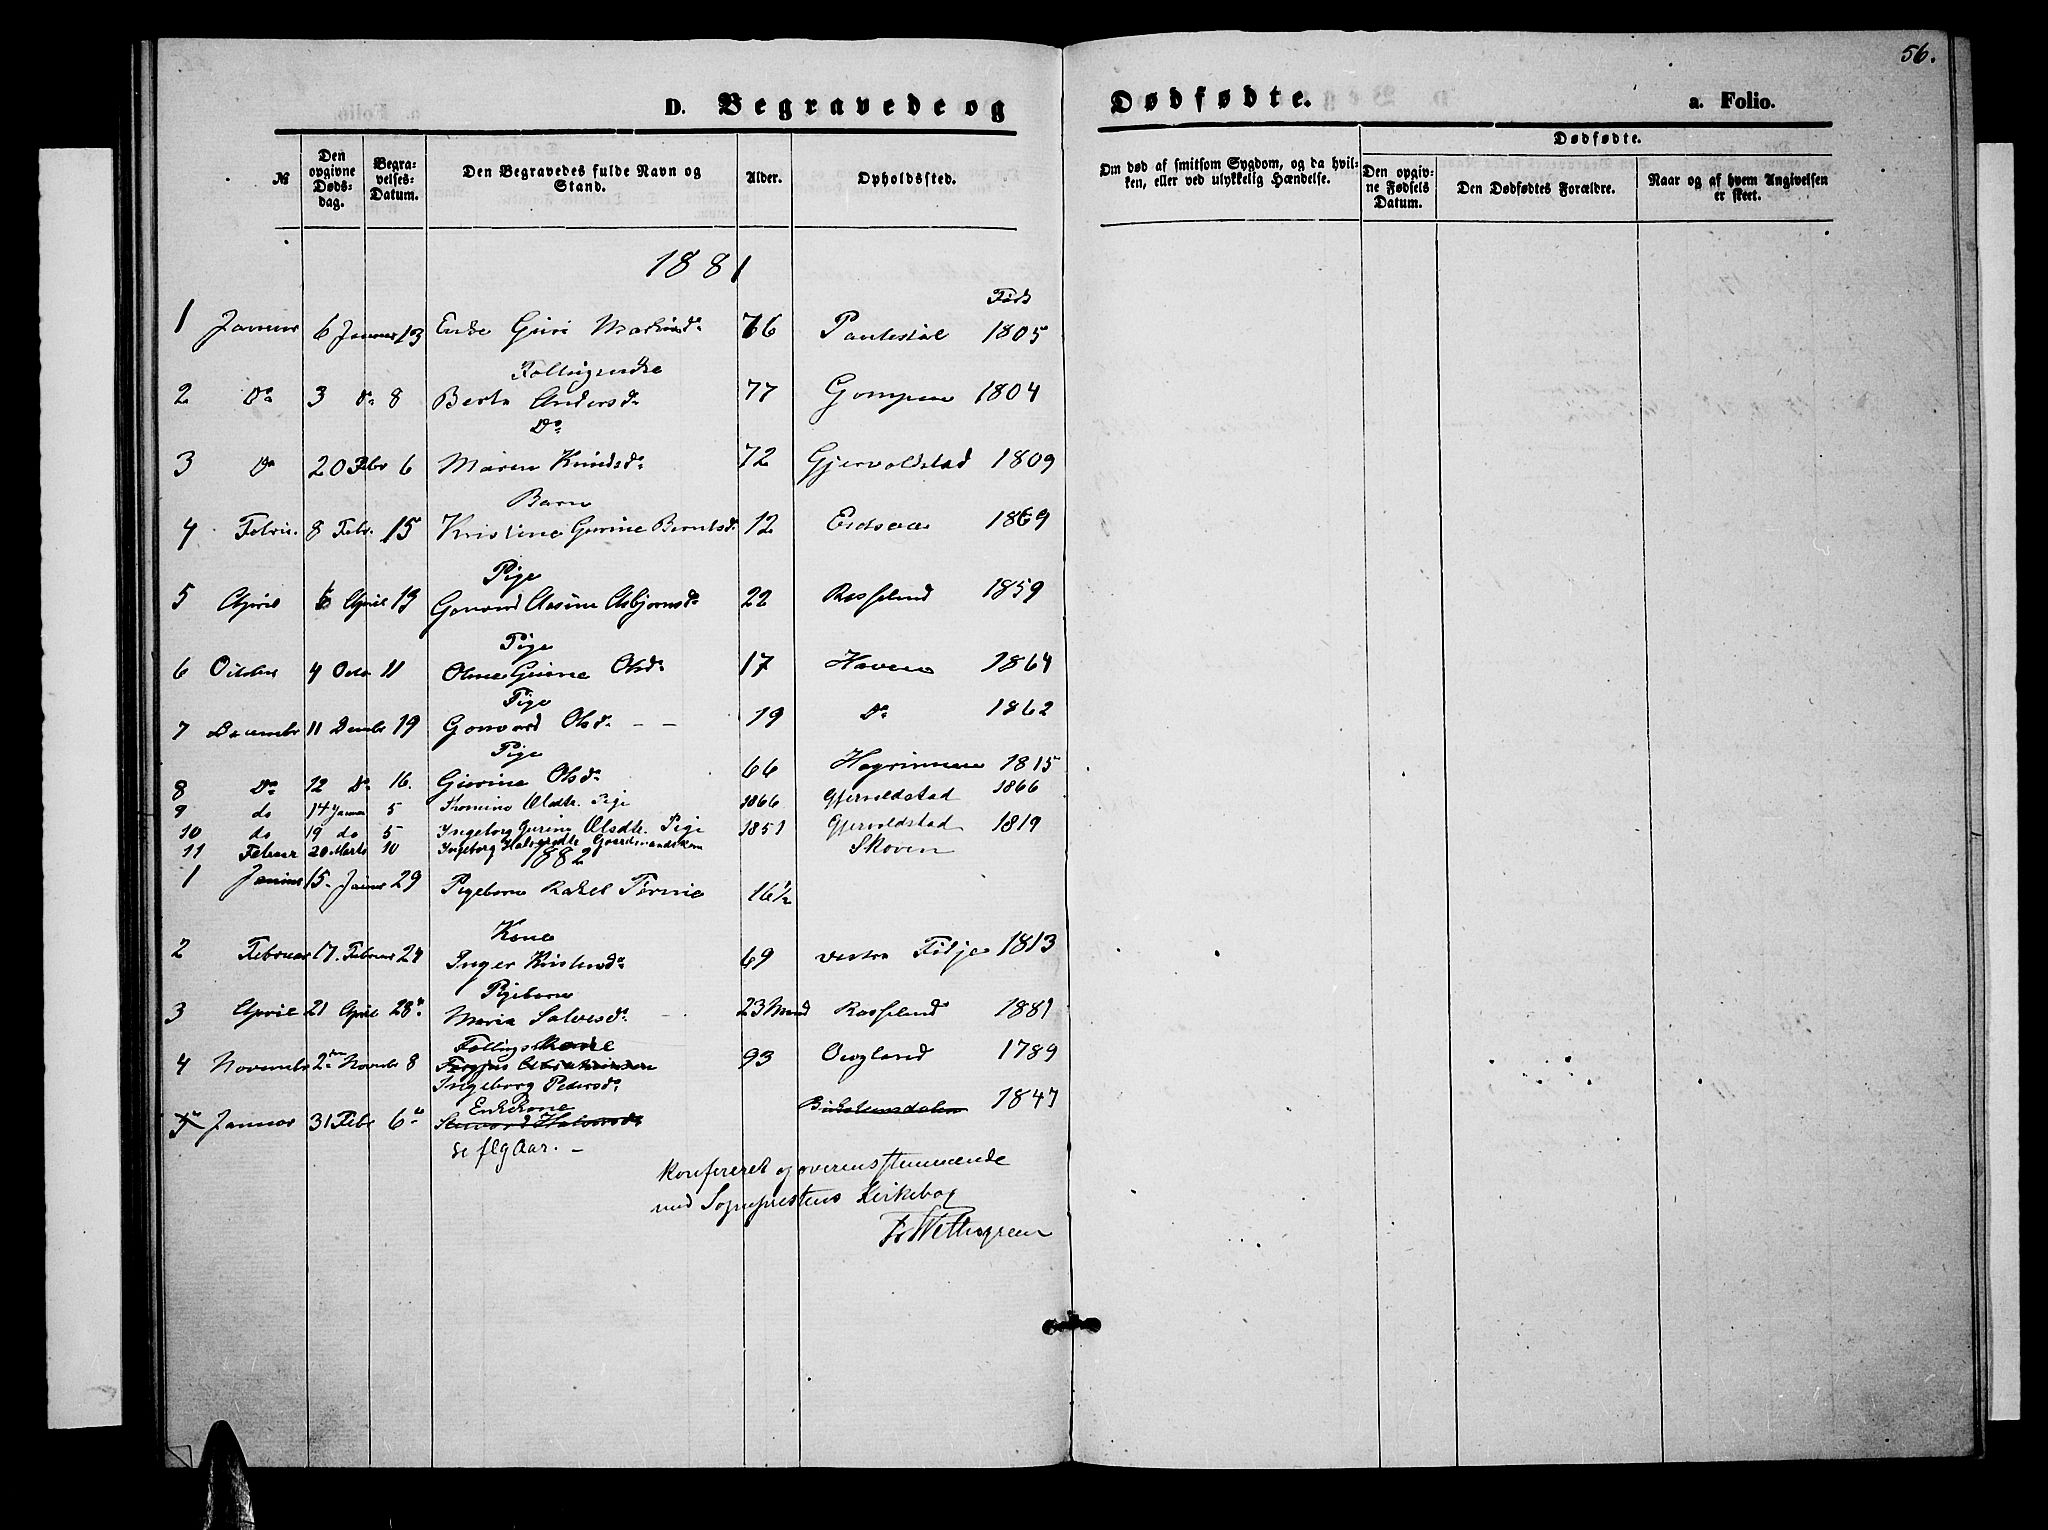 56.
D. Begravede og Dødfødte. a. Folio.
№
Den opgivne Døds- dag.
Begra- velses- Datum.
Den Begravedes fulde Navn og Stand.
Alder.
Opholdssted.
Om død af smitsom Sygdom, og da hvil- ken, eller ved ulykkelig Hændelse.
Dødfødte.
Den opgiv- ne Fødsels Datum.
Den Dødfødtes Forældre.
Naar og af hvem Angivelsen er skeet.
1881
Født
1 Januar 6 Januar 13 Enke Guri 76 1805
Fattigenke
2 Do 3 Do 8 Berte Andersdr 77 Gompen 1804
Do
3 Do 20 Febr 6 Maren Knudsdr 72 Gjervoldstad 1809
Barn
4 Februar 8 Febr. 15 Kristine Gurine Berntsdr 12 Eidsaa 1869
Pige
5 April 6 April 13 Gonvord Aasine Asbjørnsdr 22 Rosseland 1859
Pige
6 October 4 Octo 11 Olsdr 17 Haven 1864
Pige
7 December 11 Decembr 19 Gonvord Olsdr - - 19 Do 1862
Pige
8 Do 12 Do 16. Olsdr 66 1815
9 do 14 Januar 5 Thomine Olsdtr. Pige 1866 Gjervoldstad 1866
10 do 19 do 5 Ingeborg Gurine Olsdtr. Pige 1851 Gjervoldstad 1819
11 Februar 20 Marts 10 Ingeborg Halvorsdtr Gaardmandskone Skoven
1882
1 Januar 15. Januar 29 Pigebarn Rakel Tomine 16½
Kone
2 Februar 17. Februar 24 Inger Kristensdr 69 vestre Filje 1813
Pigebarn
3 April 21 April 28de Maria Salvesdr. 23 Mnd Rosseland 1881
Fattigs
4 Novembr 2den Novembr 8 93 Owgland 1789
Ingeborg Pedersdr
Enkekone
5 Januar 31 Febr 6te Halvorsdr Birkelandsdalen 1847
se flg Aar. -
Konfereret og overensstemmende
med Sognepræstens Kirkebog
Fr Wettergreen